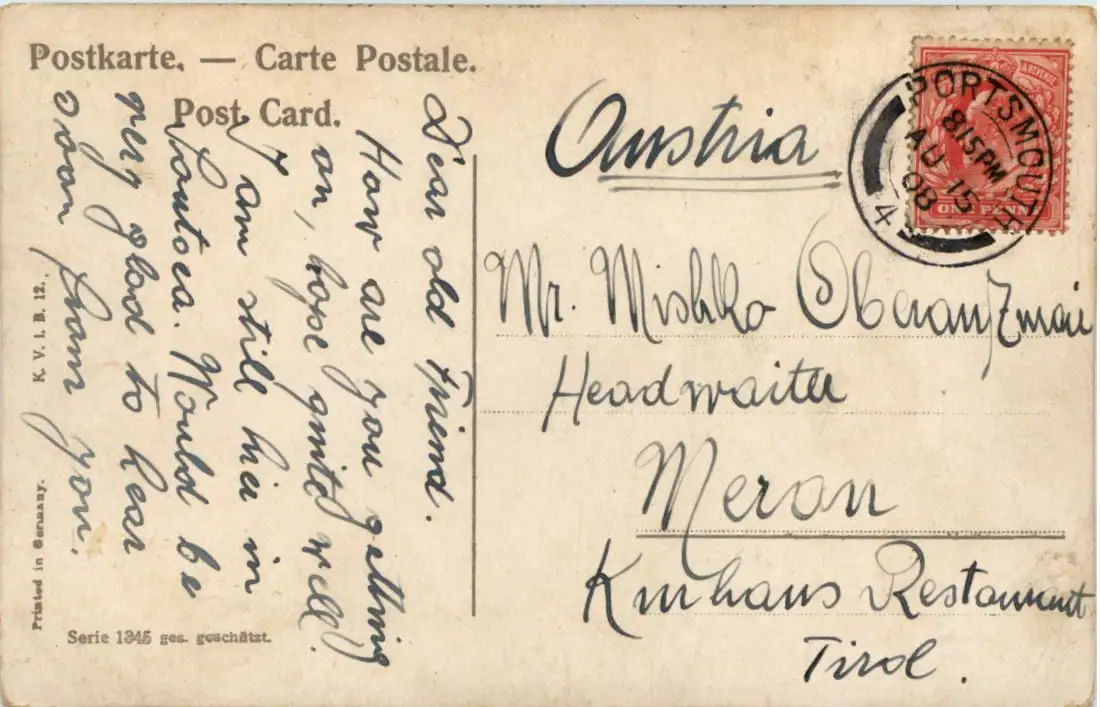 Postkarte. — Carte Postale.
Post Card.
Dear old Friend.
How are you getting
on, hope quited well.
I am still hier in
Soutsea. Would be
very glad to hear
soon fram you.
K. V. i. B. 12.
Printed in Germany.
Serie 1345 ges. geschützt.
PORTSMOUTH
8.15 PM
AU 15
08
4
& REVENUE
ONE PENNY
Austria
Mr. Mishko
Headwaiter
Meran
Kurhaus Restaurant
Tirol.